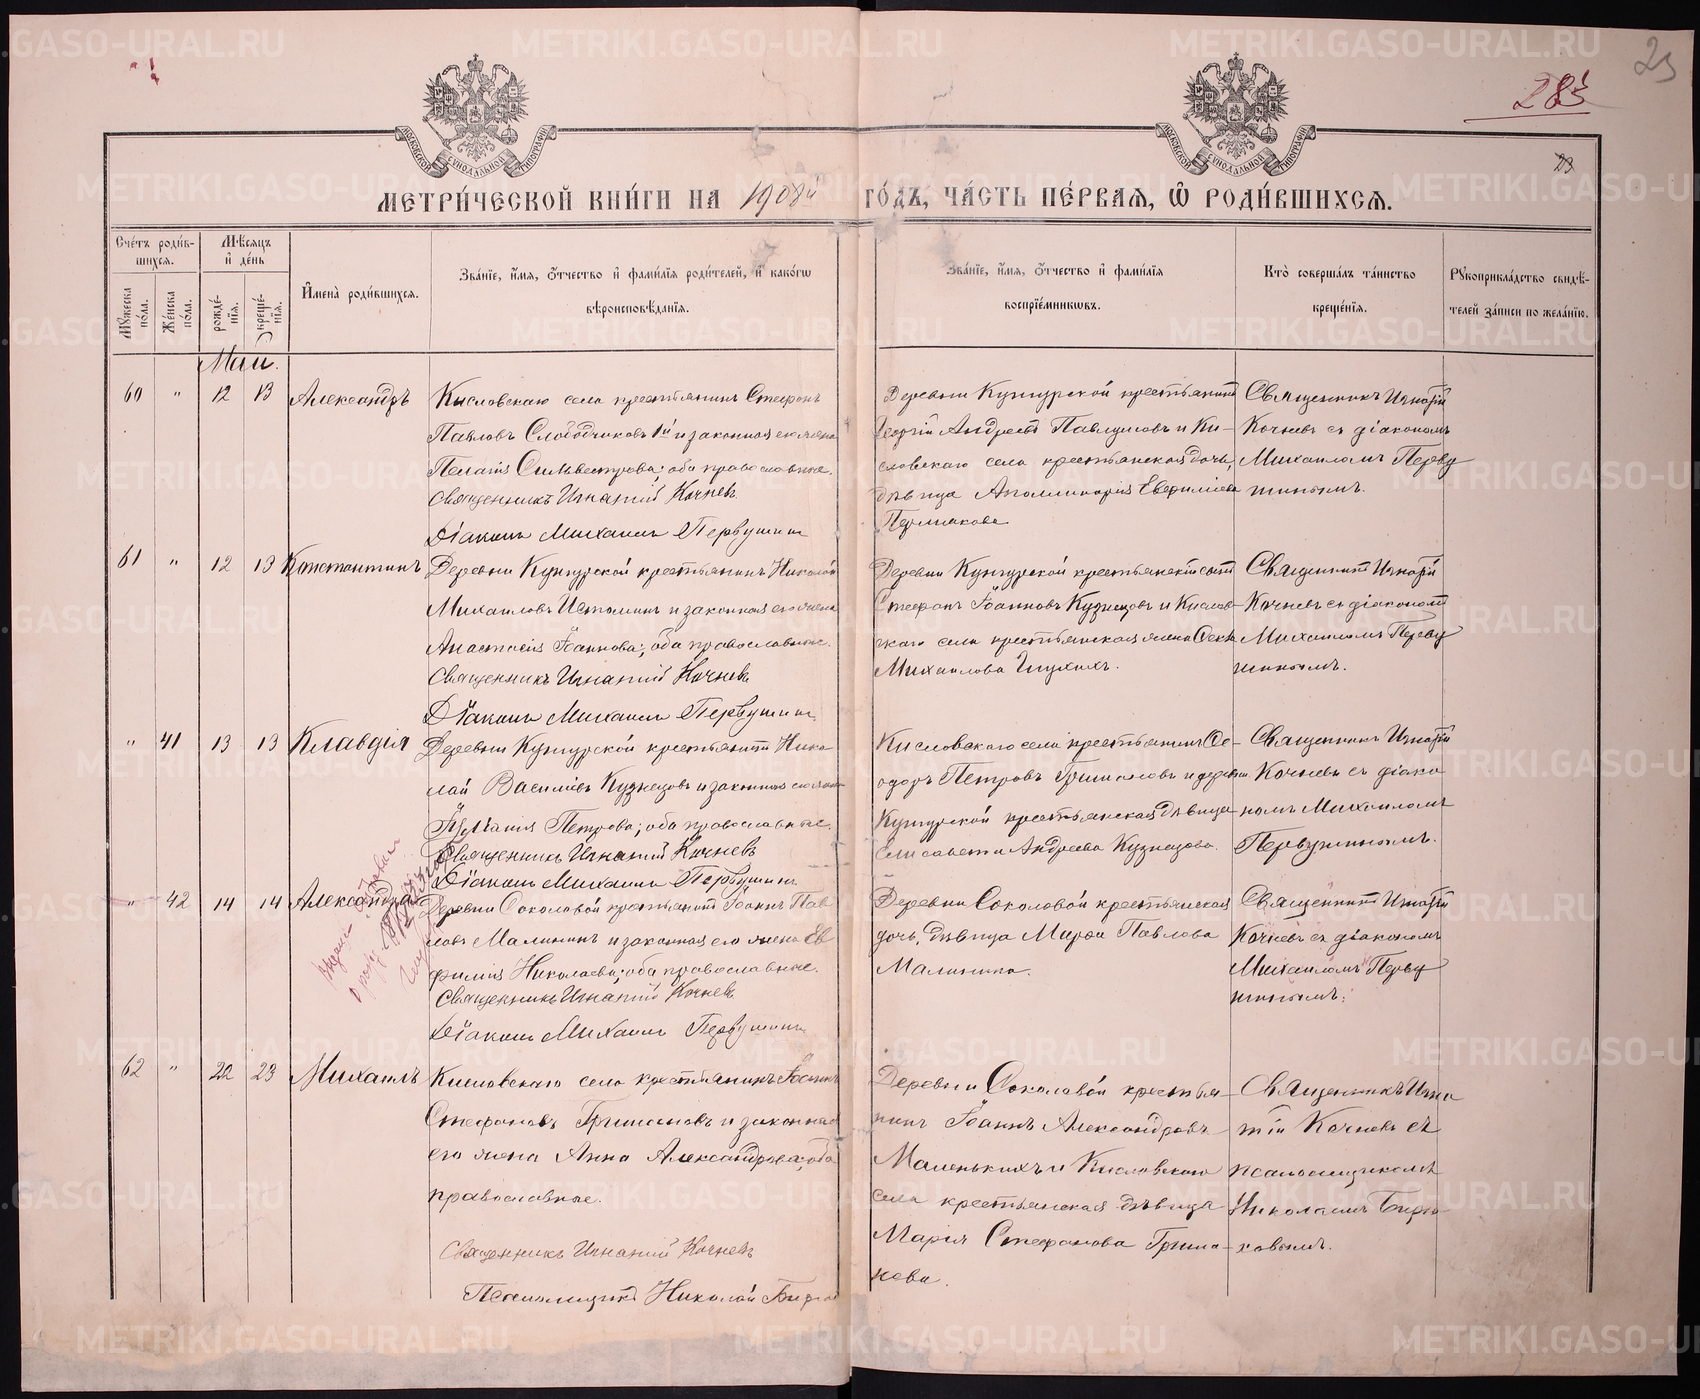 23
283
23
МОСКОВСКОЙ СѴНОДАЛЬНОЙ ТИПОГРАФІИ
МОСКОВСКОЙ СѴНОДАЛЬНОЙ ТИПОГРАФІИ
МЕТРИ́ЧЕСКОЙ КНИ́ГИ НА 1908й ГО́ДЪ, ЧА́СТЬ ПЕ́РВАѦ, Ѽ РОДИ́ВШИХСѦ.
Сче́тъ роди́в-
шихсѧ.
Мѣ́сѧцъ
и҆ де́нь
Мꙋ́жеска по́ла.
Же́нска по́ла.
рожде́-нїѧ.
креще́-нїѧ.
И҆мена̀ роди́вшихсѧ.
Зва́нїе, и҆́мѧ, ѻ҆́тчество и҆ фами́лїѧ роди́телей, и҆ како́гѡ
вѣроисповѣ́данїѧ.
Зва́нїе, и҆́мѧ, ѻ҆́тчество и҆ фами́лїѧ
воспрїе́мникѡвъ.
Кто̀ соверша́лъ та́инство
креще́нїѧ.
Рꙋкоприкла́дство свидѣ́-
телей за́писи по жела́нїю.
Май.
60 " 12 13 Александръ
Кисловскаго села крестьянинъ Стефанъ
Павловъ Слободчиковъ 1й и законная его жена
Пелагія Сильвестрова; оба православные.
Священникъ Игнатій Кочневъ
Діаконъ Михаилъ Первушинъ
Деревни Кунгурской крестьянинъ
Георгій Андреевъ Павлуповъ и Ки-
словскаго села крестьянская дочь,
дѣвица Аполлинарія Евфиміева
Пермякова
Священникъ Игнатій
Кочневъ съ діакономъ
Михаиломъ Перву
шинымъ.
61 " 12 13 Константинъ
Деревни Кунгурской крестьянинъ Николай
Михаиловъ Истоминъ и законная его жена
Анастасія Іоаннова; оба православные.
Священникъ Игнатій Кочневъ
Діаконъ Михаилъ Первушинъ
Деревни Кунгурской крестьянскій сынъ
Стефанъ Іоанновъ Кузнецовъ и Кислов-
скаго села крестьянская жена Фекла
Михаилова Глухихъ.
Священникъ Игнатій
Кочневъ съ діакономъ
Михаиломъ Перву
шинымъ.
" 41 13 13 Клавдія
Деревни Кунгурской крестьянинъ Нико-
лай Василіевъ Кузнецовъ и законная его жена
Петрова; оба православные.
Священникъ Игнатій Кочневъ
Діаконъ Михаилъ Первушинъ
Кисловскаго села крестьянинъ Ѳе-
одоръ Петровъ Гришановъ и деревни
Кунгурской крестьянская дѣвица
Елисавета Андреева Кузнецова.
Священникъ Игнатій
Кочневъ съ діако
номъ Михаиломъ
Первушинымъ.
" 42 14 14 Александра
Деревни Соколовой крестьянинъ Іоаннъ Пав
ловъ Малининъ и законная его жена Ев
фимія Николаева; оба православные.
Священникъ Игнатій Кочневъ
Діаконъ Михаилъ Первушинъ
Деревни Соколовой крестьянская
дочь, дѣвица Марѳа Павлова
Малинина.
Священникъ Игнатій
Кочневъ съ діакономъ
Михаиломъ Перву
шинымъ.
62 " 22 23 Михаилъ
Кисловскаго села крестьянинъ Іоаннъ
Стефановъ Гришановъ и законная
его жена Анна Александрова; оба
православные.
Священникъ Игнатій Кочневъ
Псаломщикъ Николай
Деревни Соколовой крестья-
нинъ Іоаннъ Александровъ
Маленькихъ и Кисловскаго
села крестьянская дѣвица
Марія Стефанова Гриша-
нова.
Священникъ Игна
тій Кочневъ съ
псаломщикомъ
Николаемъ
ковымъ.
METRIKI.GASO-URAL.RU